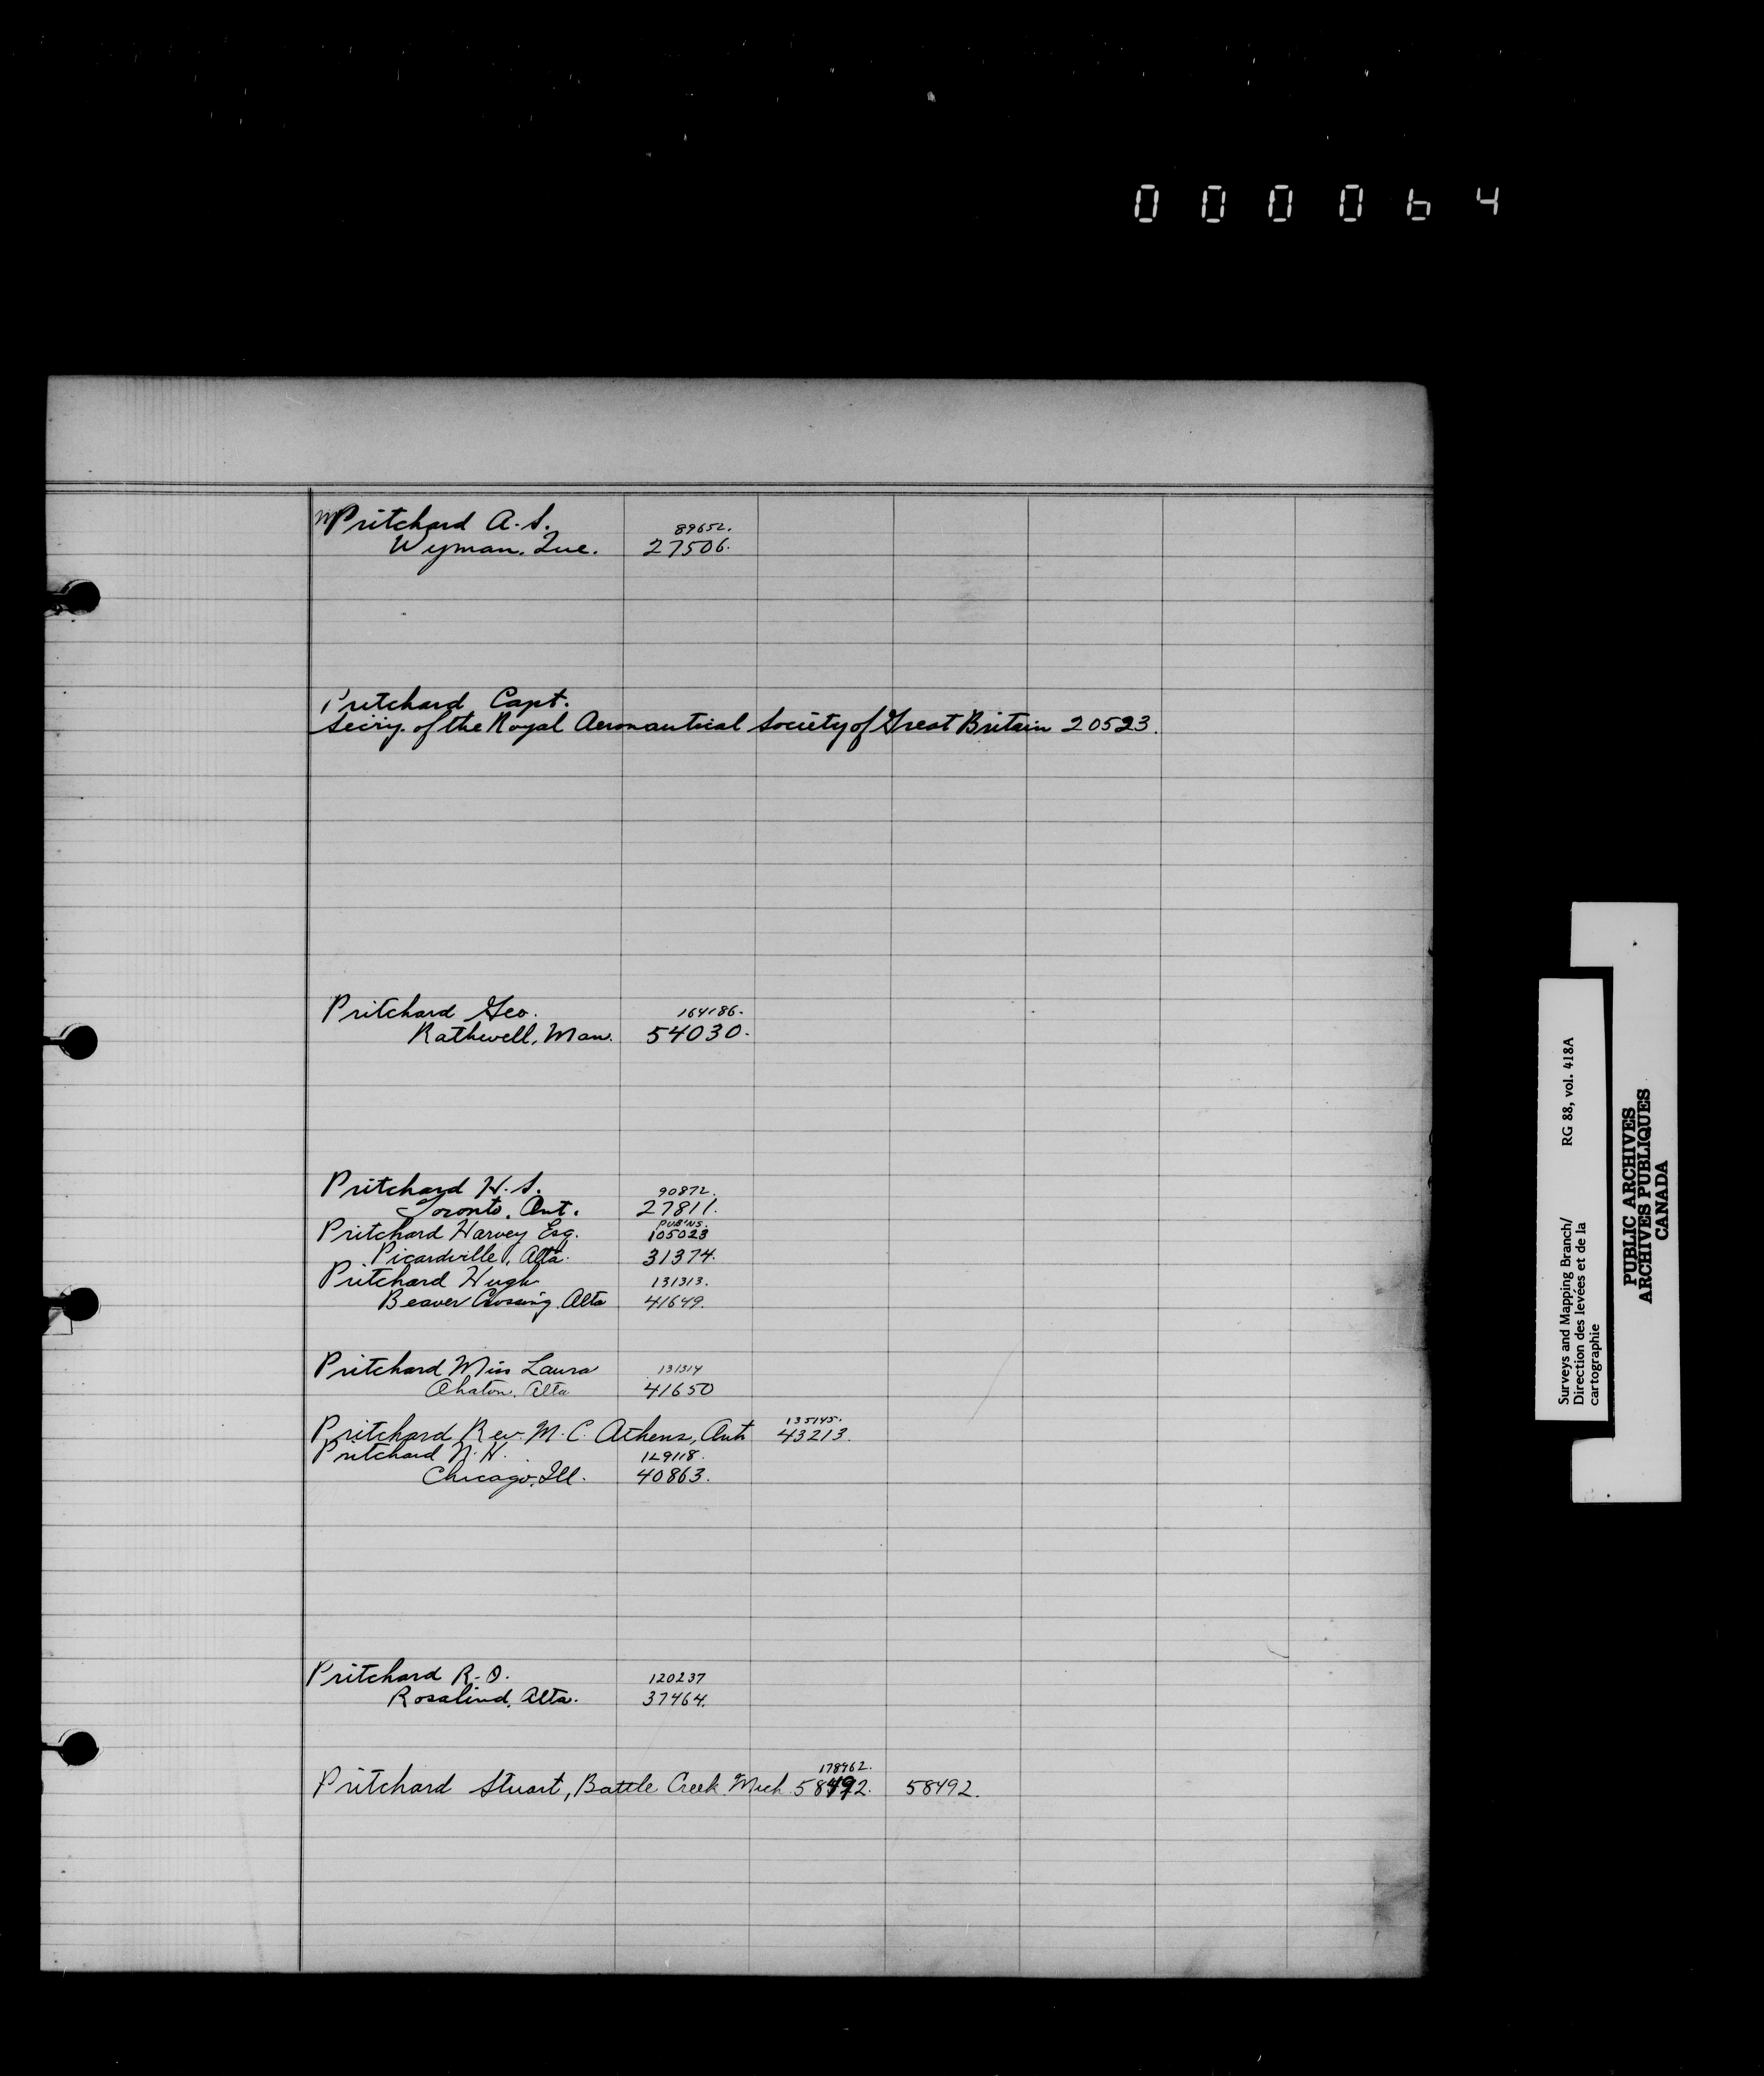 000064
Pritchard A. S. 89652.
Wyman. Que. 27506.
Pritchard Capt.
Sec'y. of the Royal Aeronautical Society of Great Britain 20523.
Pritchard Geo. 164186.
Rathwell, Man. 54030.
Pritchard H. S. 90872.
Toronto. Ont. 27811.
PUB'NS.
Pritchard Harvey Esq. 105023
Picardville, Alta. 31374.
Pritchard Hugh 131313.
Beaver Crossing Alta 41649.
Pritchard Miss Laura 131314
Ohaton, Alta 41650
135145.
Pritchard Rev. M. C. Athens, Ont 43213.
Pritchard N. H. 129118.
Chicago, Ill. 40863.
Pritchard R. O. 120237
Rosalind, Alta. 37464.
178962.
Pritchard Stuart, Battle Creek Mich 58492. 58492.
Surveys and Mapping Branch/ RG 88, vol. 418A
Direction des levées et de la
cartographie
PUBLIC ARCHIVES
ARCHIVES PUBLIQUES
CANADA